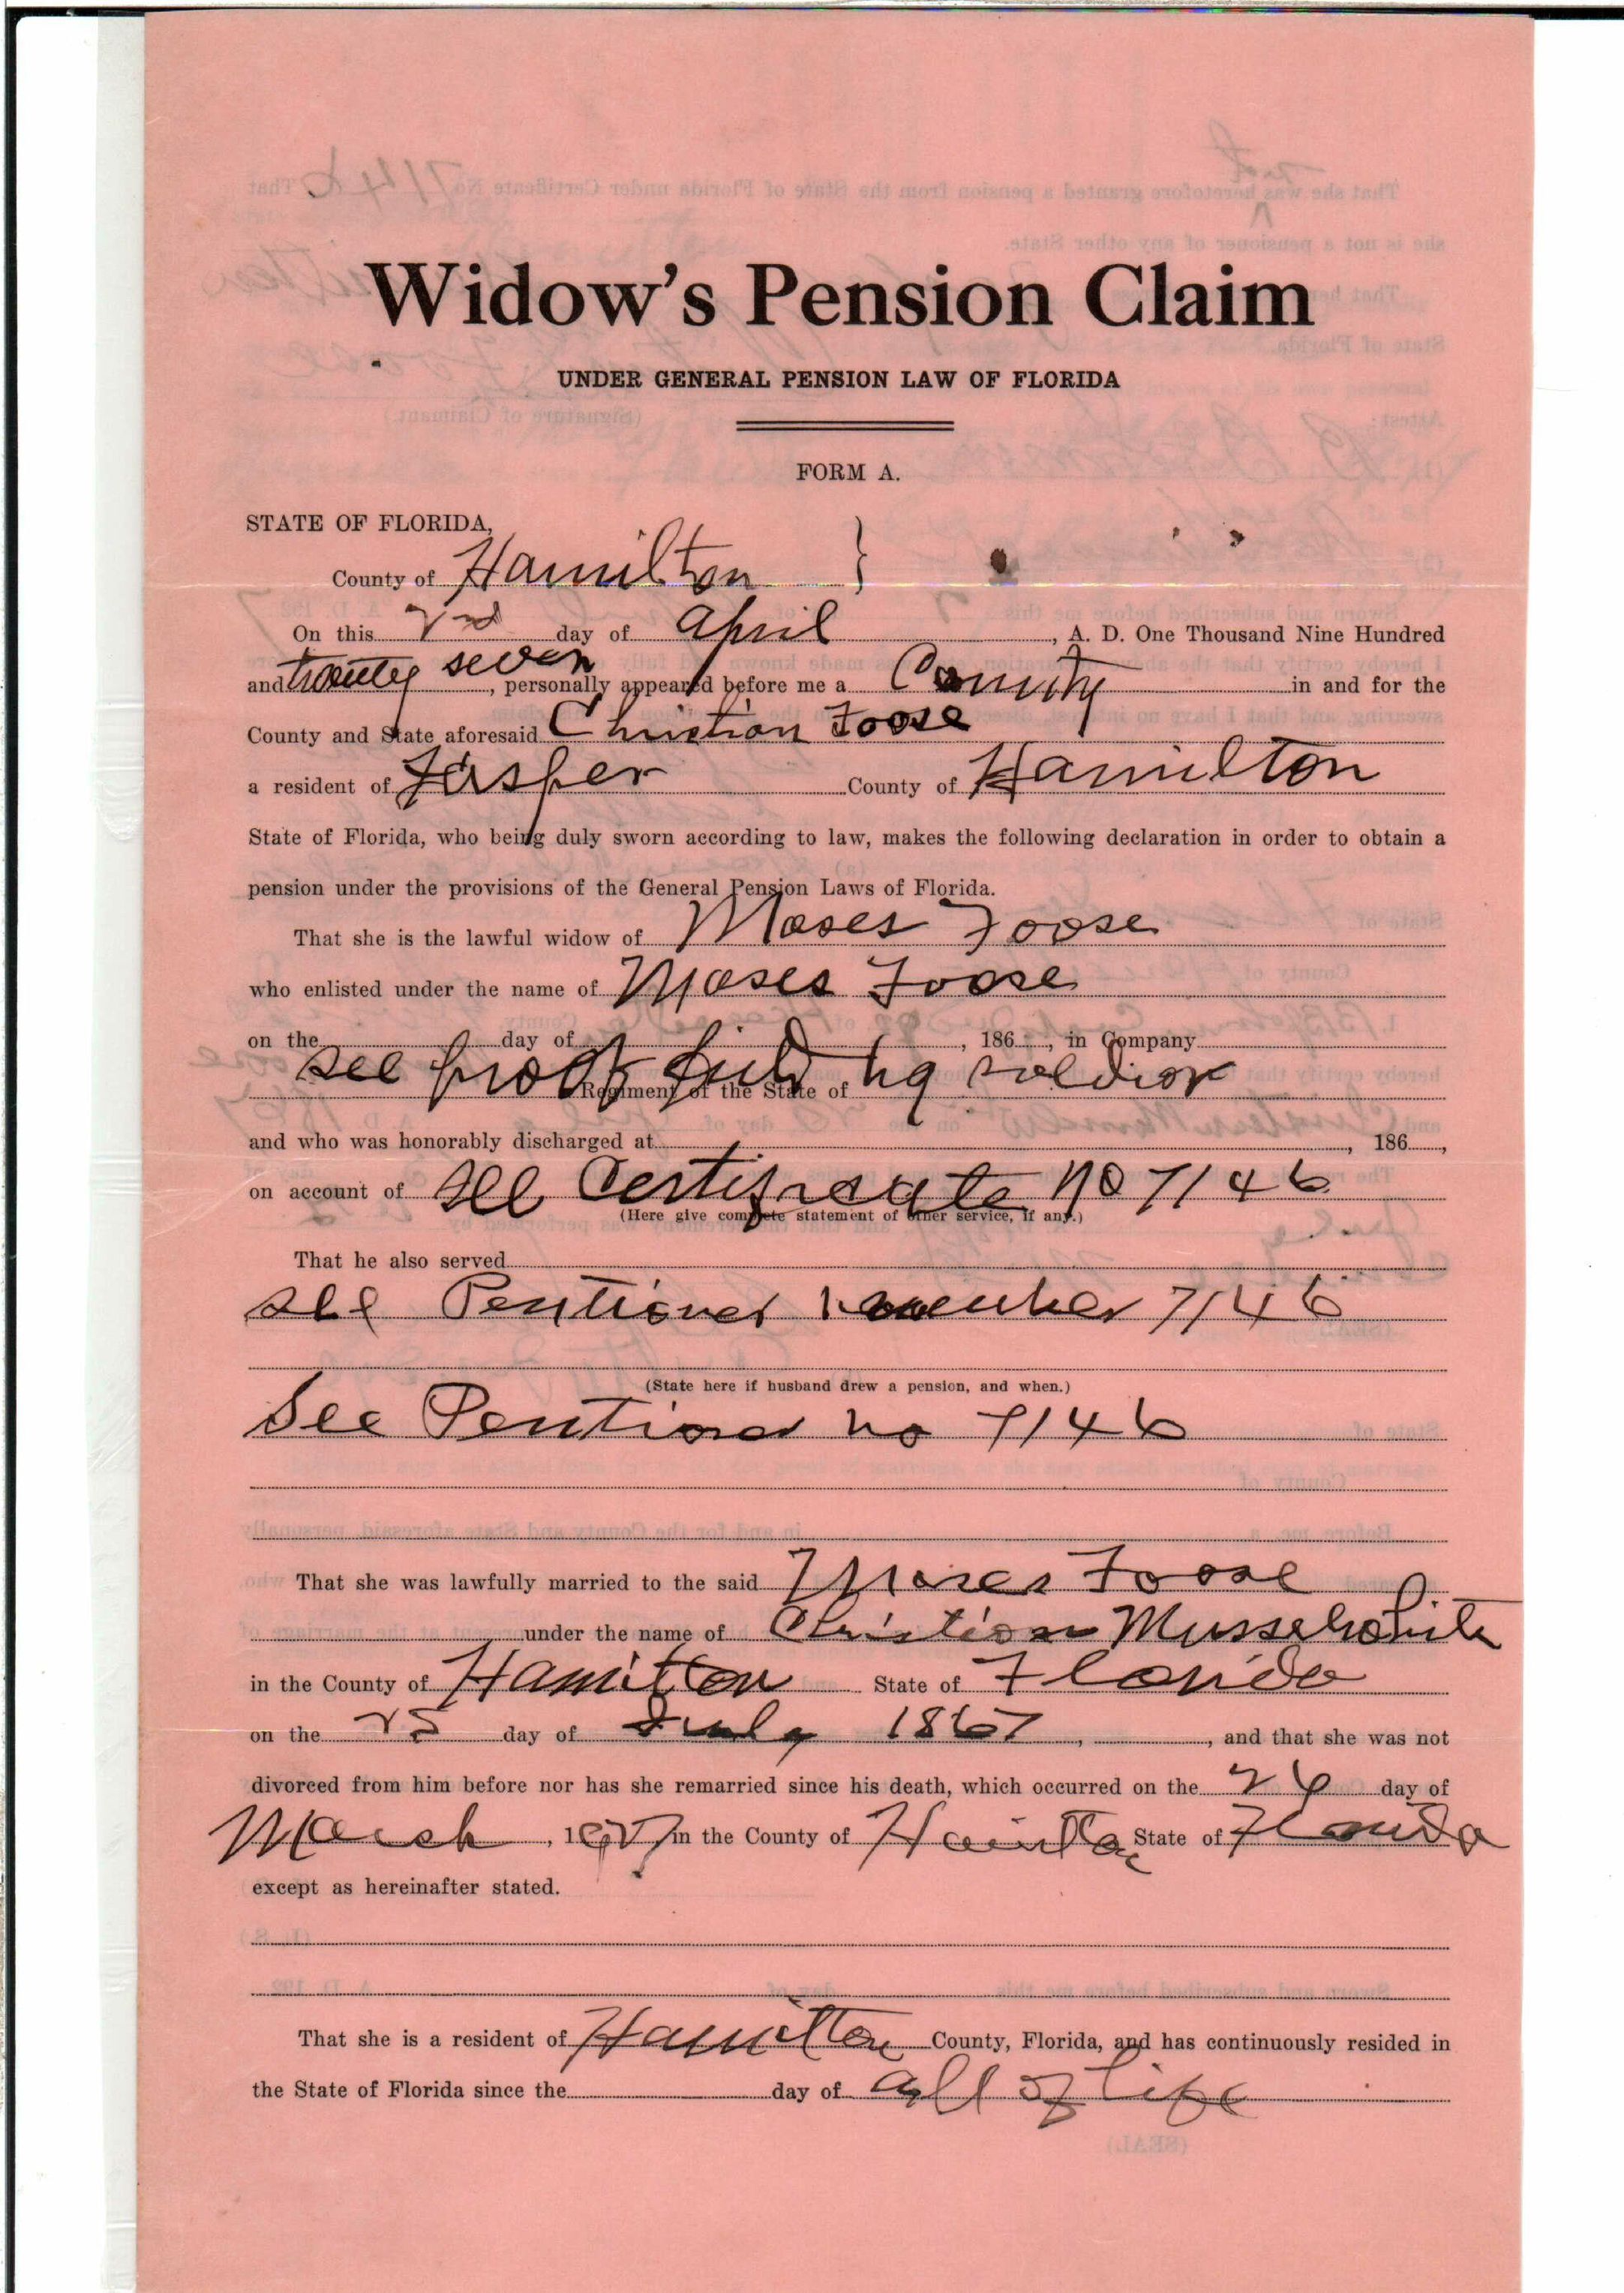 Widow's Pension Claim
UNDER GENERAL PENSION LAW OF FLORIDA
FORM A.
STATE OF FLORIDA,
County of Hamilton }
On this 2nd day of April, A. D. One Thousand Nine Hundred
and twenty seven, personally appeared before me a County in and for the
County and State aforesaid Christian Foose
a resident of Jasper County of Hamilton
State of Florida, who being duly sworn according to law, makes the following declaration in order to obtain a
pension under the provisions of the General Pension Laws of Florida.
That she is the lawful widow of Moses Foose
who enlisted under the name of Moses Foose
on the day of , 186 , in Company
see proof filed by soldier
Regiment of the State of
and who was honorably discharged at , 186 ,
on account of see Certificate no 7146
(Here give complete statement of other service, if any.)
That he also served
see Pentioner number 7146
(State here if husband drew a pension, and when.)
See Pentioner no 7146
That she was lawfully married to the said Moses Foose
under the name of Christian Musselwhite
in the County of Hamilton State of Florida
on the 25 day of July 1867, , and that she was not
divorced from him before nor has she remarried since his death, which occurred on the 26 day of
March, 1927 in the County of Hamilton State of Florida
except as hereinafter stated.
That she is a resident of Hamilton County, Florida, and has continuously resided in
the State of Florida since the day of all of life